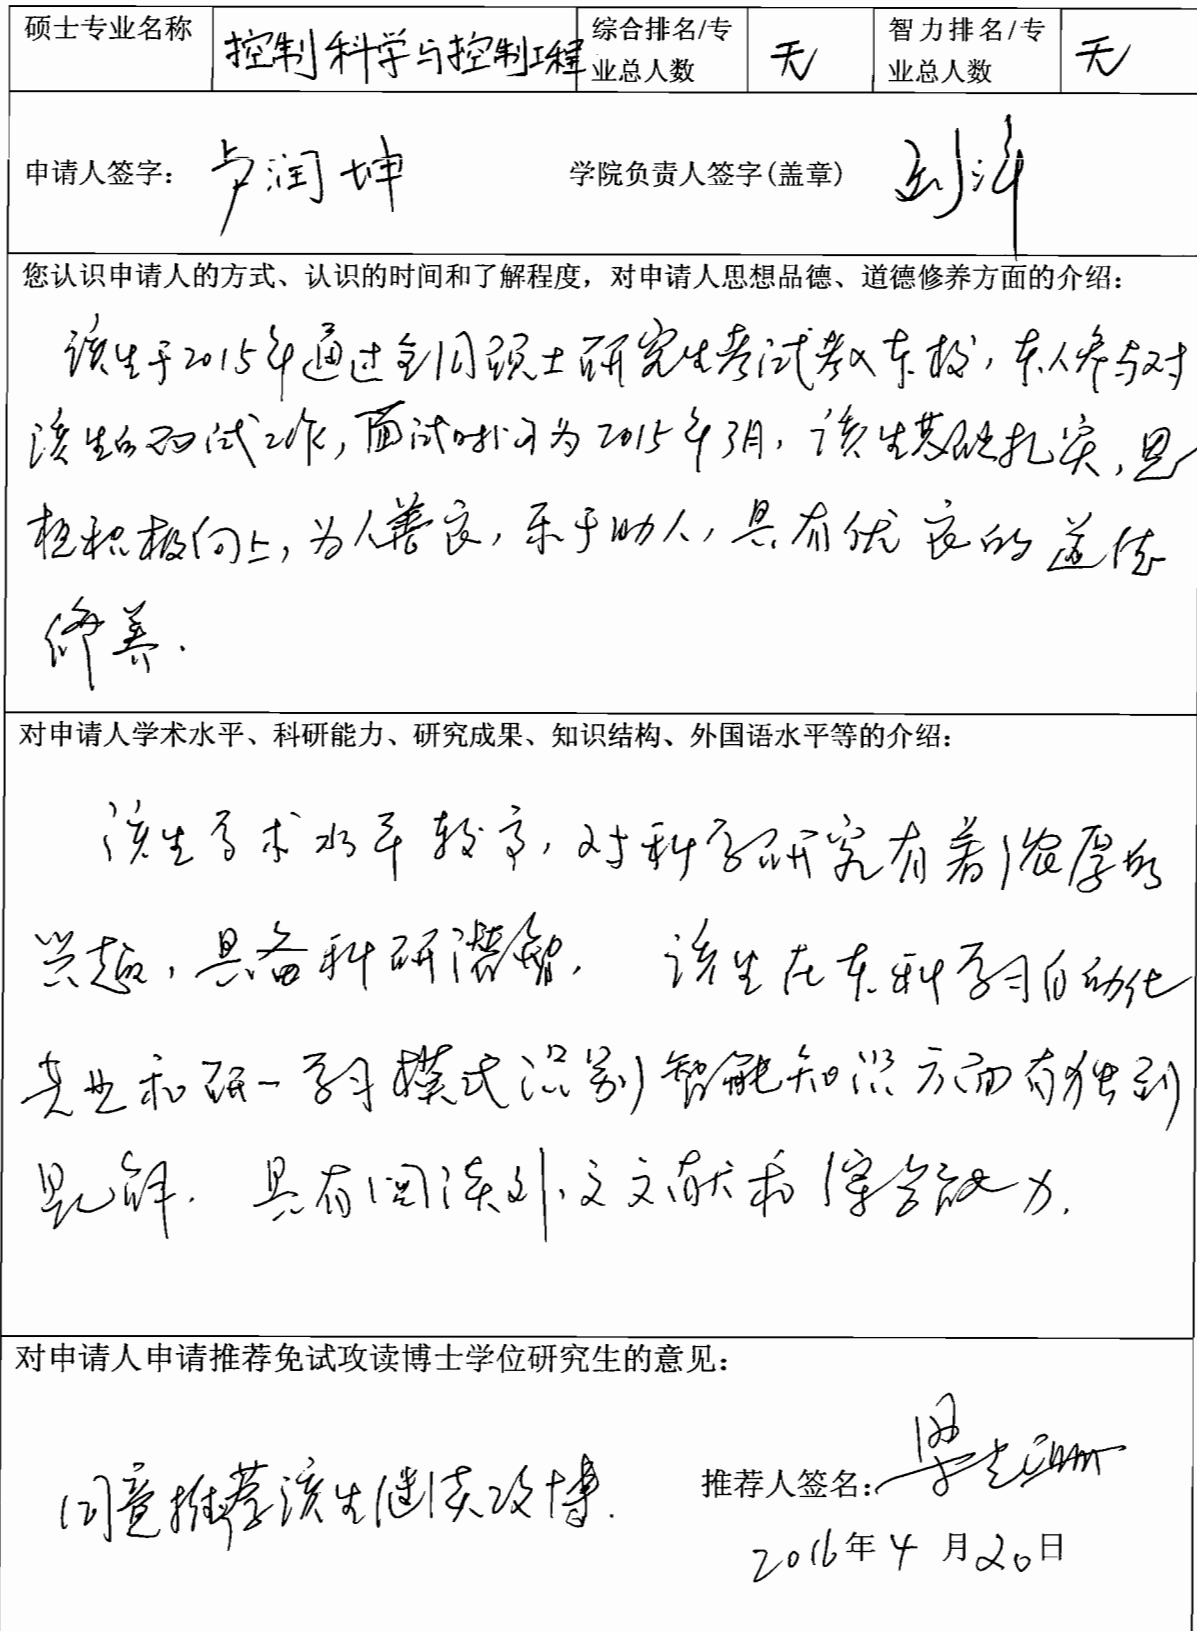 硕士专业名称 控制科学与控制工程 综合排名/专业总人数 无 智力排名/专业总人数 无
申请人签字： 卢润坤 学院负责人签字(盖章)
您认识申请人的方式、认识的时间和了解程度，对申请人思想品德、道德修养方面的介绍：
该生于2015年通过全国硕士研究生考试考入本校，本人参与对
该生的面试工作，面试时间为2015年3月，该生基础扎实，思
想积极向上，为人善良，乐于助人，具有优良的道德
修养.
对申请人学术水平、科研能力、研究成果、知识结构、外国语水平等的介绍：
该生学术水平较高，对科学研究有着浓厚的
兴趣，具备科研潜能. 该生在本科学习自动化
专业和研一学习模式识别智能知识方面有独到
见解. 具有阅读外文文献和写会能力.
对申请人申请推荐免试攻读博士学位研究生的意见：
同意推荐该生继续攻博.
推荐人签名：
2016年4月20日